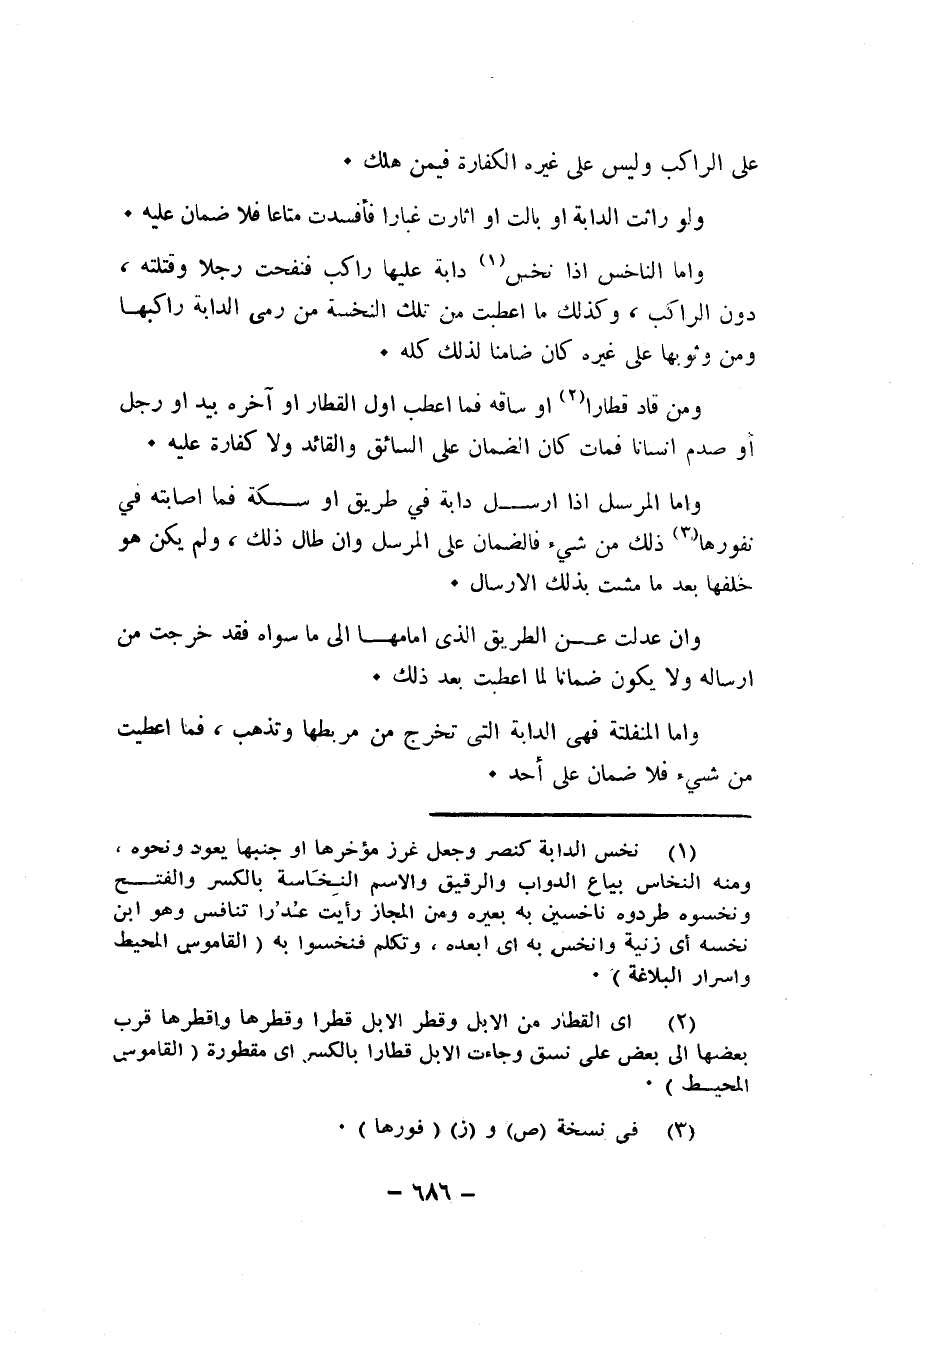 على الراكب وليس على غيره الكفارة فيمن هلك ٠
ولو راثت الدابة او بالت او اثارت غبارا فأفسدت متاعا فلا ضمان عليه ٠
واما الناخس اذا نخس(١) دابة عليها راكب فنفحت رجلا وقتلته ،
دون الراكب ، وكذلك ما اعطبت من تلك النخسة من رمى الدابة راكبهـا
ومن وثوبها على غيره كان ضامنا لذلك كله ٠
ومن قاد قطارا(٢) او ساقه فما اعطب اول القطار او آخره بيد او رجل
أو صدم انسانا فمات كان الضمان على السائق والقائد ولا كفارة عليه ٠
واما المرسل اذا ارســـل دابة في طريق او ســـكة فما اصابته في
نفورها(٣) ذلك من شيء فالضمان على المرسل وان طال ذلك ، ولم يكن هو
خلفها بعد ما مشت بذلك الارسال ٠
وان عدلت عـــن الطريق الذى امامهـــا الى ما سواه فقد خرجت من
ارساله ولا يكون ضمانا لما اعطبت بعد ذلك ٠
واما المنفلتة فهى الدابة التى تخرج من مربطها وتذهب ، فما اعطيت
من شيء فلا ضمان على أحد ٠
(١) نخس الدابة كنصر وجعل غرز مؤخرها او جنبها يعود ونحوه ،
ومنه النخاس بياع الدواب والرقيق والاسم النخاسة بالكسر والفتـــح
ونخسوه طردوه ناخسين به بعيره ومن المجاز رأيت غدرا تنافس وهو ابن
نخسه أى زنية وانخس به اى ابعده ، وتكلم فنخسوا به ( القاموس المحيط
واسرار البلاغة ) ٠
(٢) اى القطار من الابل وقطر الابل قطرا وقطرها واقطرها قرب
بعضها الى بعض على نسق وجاءت الابل قطارا بالكسر اى مقطورة ( القاموس
المحيــط ) ٠
(٣) فى نسخة (ص) و (ز) ( فورها ) ٠
– ٦٨٦ –